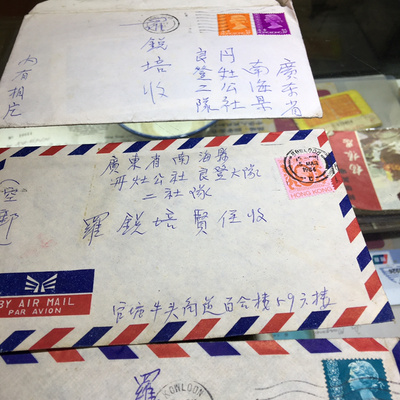 廣東省
南海县
丹灶公社
良登二隊
鋭培
收
内有相片
廣東省南海縣
丹灶公社良登大隊
二社隊
羅鋭培賢侄收
KOWLOON
1984
HONG KONG
BY AIR MAIL
PAR AVION
官塘牛头角道百合楼59元楼
羅
KOWLOON